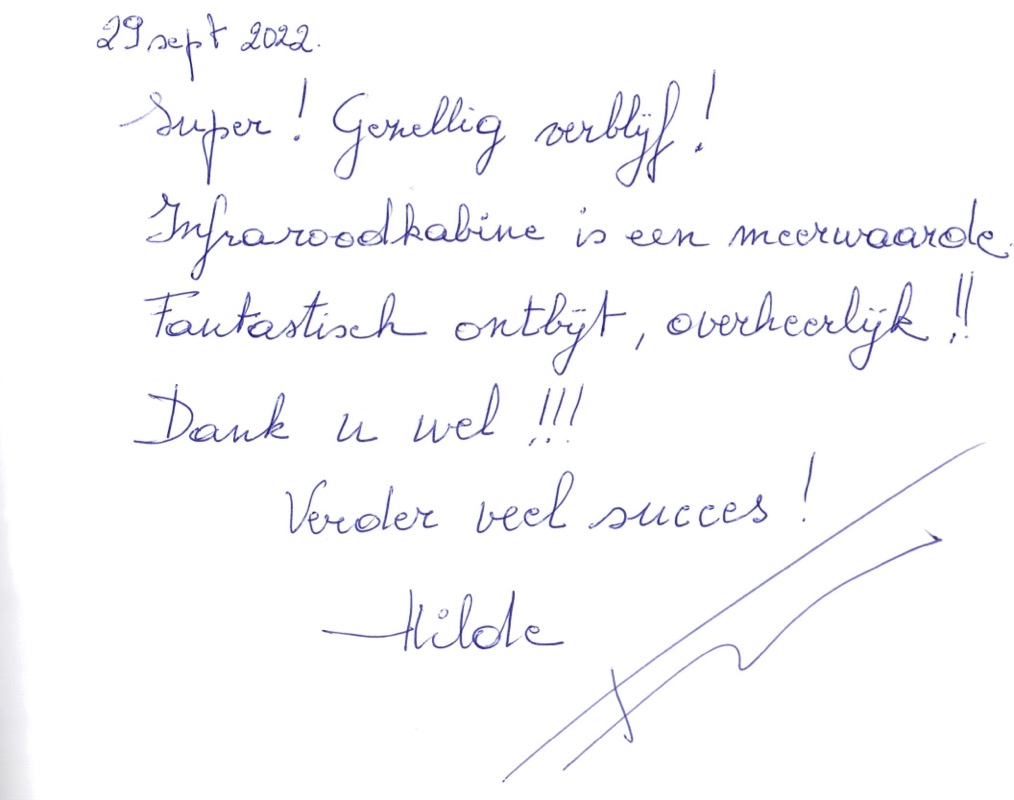 29 sept 2022.
Super! Gezellig verblijf!
Infraroodkabine is een meerwaarde.
Fantastisch ontbijt, overheerlijk!!
Dank u wel!!!
Verder veel succes!
Hilde